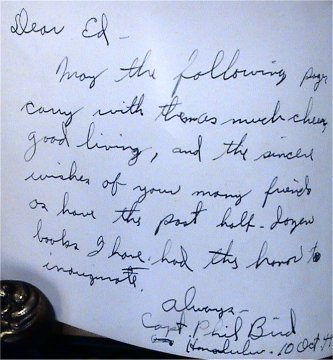 Dear Ed -
May the following pages
carry with them as much cheer,
good living, and the sincere
wishes of your many friends
as have the past half-dozen
books I have had the honor to
inaugurate.
Always -
Capt Phil Bird
Honolulu - 10 Oct